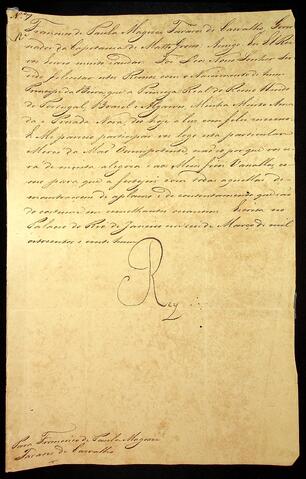 Francisco de Paula Magessi Tavares de Carvalho, Gover
nador da Capitania de Matto Grosso. Amigo. Eu El Rey
vos envio muito saudar. Foi Deos Nosso Senhor Ser
vido felicitar estes Reinos com o Nascimento de hum
Principe da Beira, que a Princeza Real do Reino Unido
de Portugal, Brazil e Algarves Minha Muito Ama
da e Prezada Nora deo hoje á luz com feliz successo.
E Me pareceo participar vos logo esta particular
Merce da Mão Omnipotente, não só por que vos se
rá de muita alegria como a Meus fieis Vassallos,
como para que a festejeis com todas aquellas de
monstraçoens de aplauso e de contentamento que são
do costume em semelhantes occasioens. Escrita no
Palacio do Rio de Janeiro em seis de Março de mil
oitocentos e vinte hum
Rey
Para Francisco de Paula Magessi
Tavares de Carvalho